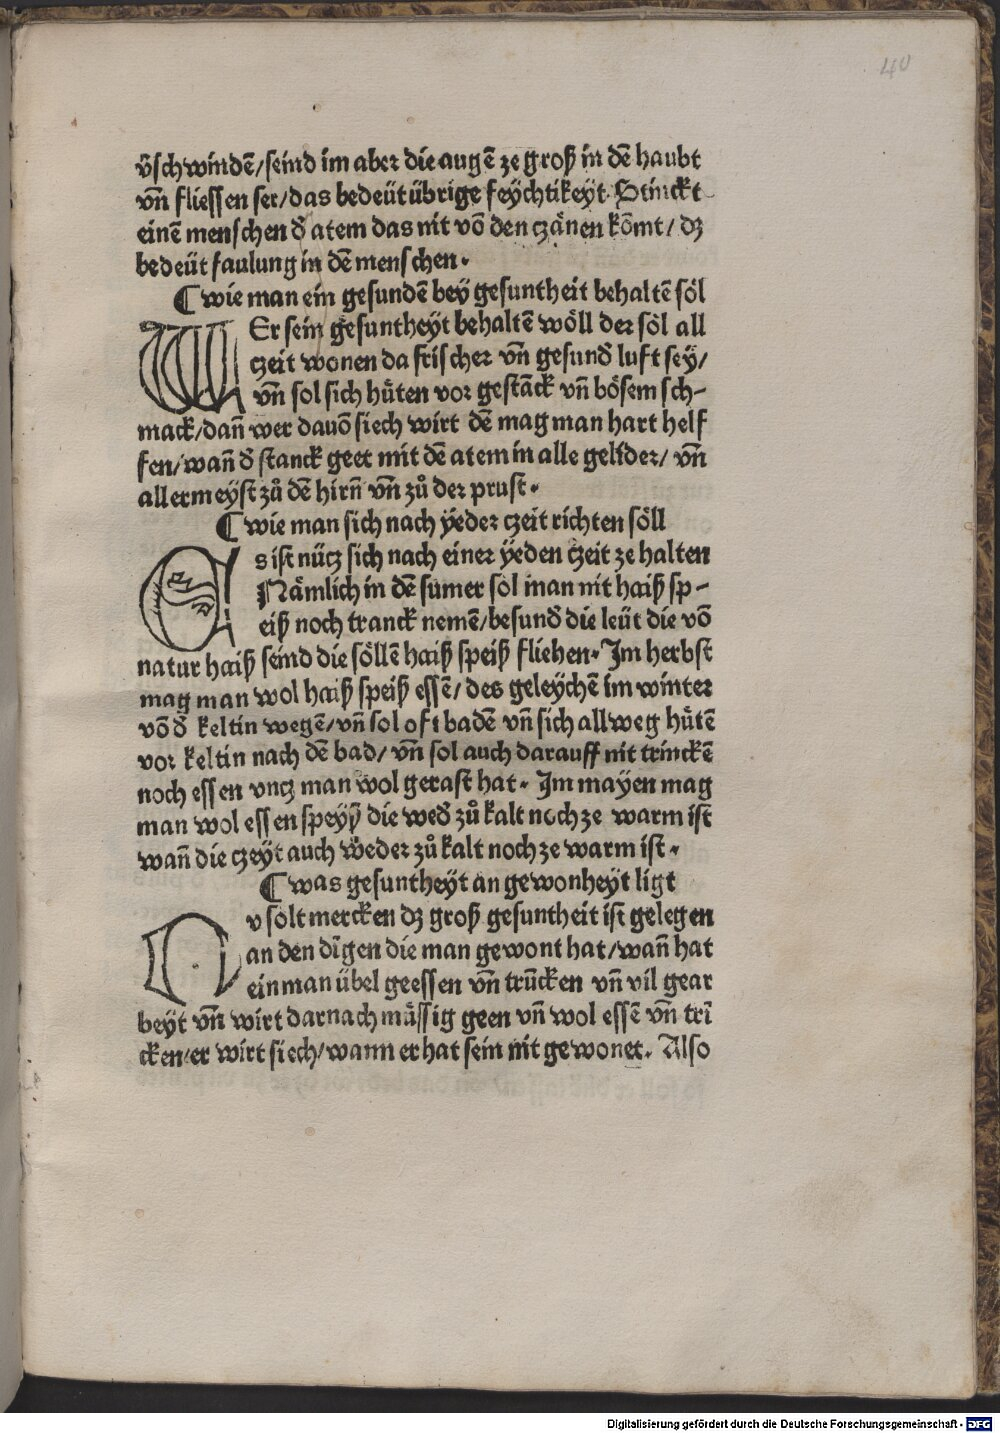 40
v̈schwindē/seind im aber die augē ze groß in dē haubt
vñ fliessen ser/das bedeüt übrige feÿchtikeÿt. Stinckt
einē menschen d̄ atem das nit vō den czänen kōmt/ dꝫ
bedeüt faulung in dē menschen.
¶ wie man ein gesundē beÿ gesuntheit behaltē söl
WEr sein gesuntheÿt behaltē wöll der söl all
czeit wonen da frischer vñ gesund luft seÿ/
vñ sol sich hüten vor gestāck vñ bösem sch-
mack/dañ wer dauō siech wirt dē mag man hart helf
fen/wañ d̄ stanck geet mit dē atem in alle gelider/ vñ
allermeÿst zů dē hirñ vñ zů der prust.
¶ wie man sich nach ÿeder czeit richten söll
Es ist nücz sich nach einer ÿeden czeit ze halten
Nämlich in dē sumer sol man nit haiß sp-
eiß noch tranck nemē/besund̄ die leüt die vō
natur haiß seind die söllē haiß speiß fliehen. Im herbst
mag man wol haiß speiß essē/ des geleÿchē im winter
vō d̄ keltin wegē/vñ sol oft badē vñ sich allweg hütē
vor keltin nach dē bad/ vñ sol auch darauff nit trinckē
noch essen vncz man wol gerast hat. Im mayen mag
man wol essen speyß die wed̄ zů kalt noch ze warm ist
wañ die czeÿt auch weder zů kalt noch ze warm ist.
¶ was gesuntheÿt an gewonheÿt ligt
Du solt mercken dꝫ groß gesuntheit ist gelegen
an den dīgen die man gewont hat/wañ hat
ein man übel geessen vñ trūcken vñ vil gear
beÿt vñ wirt darnach mässig geen vñ wol essē vñ trī
cken/er wirt siech/wann er hat sein nit gewonet. Also
Digitalisierung gefördert durch die Deutsche Forschungsgemeinschaft - DFG